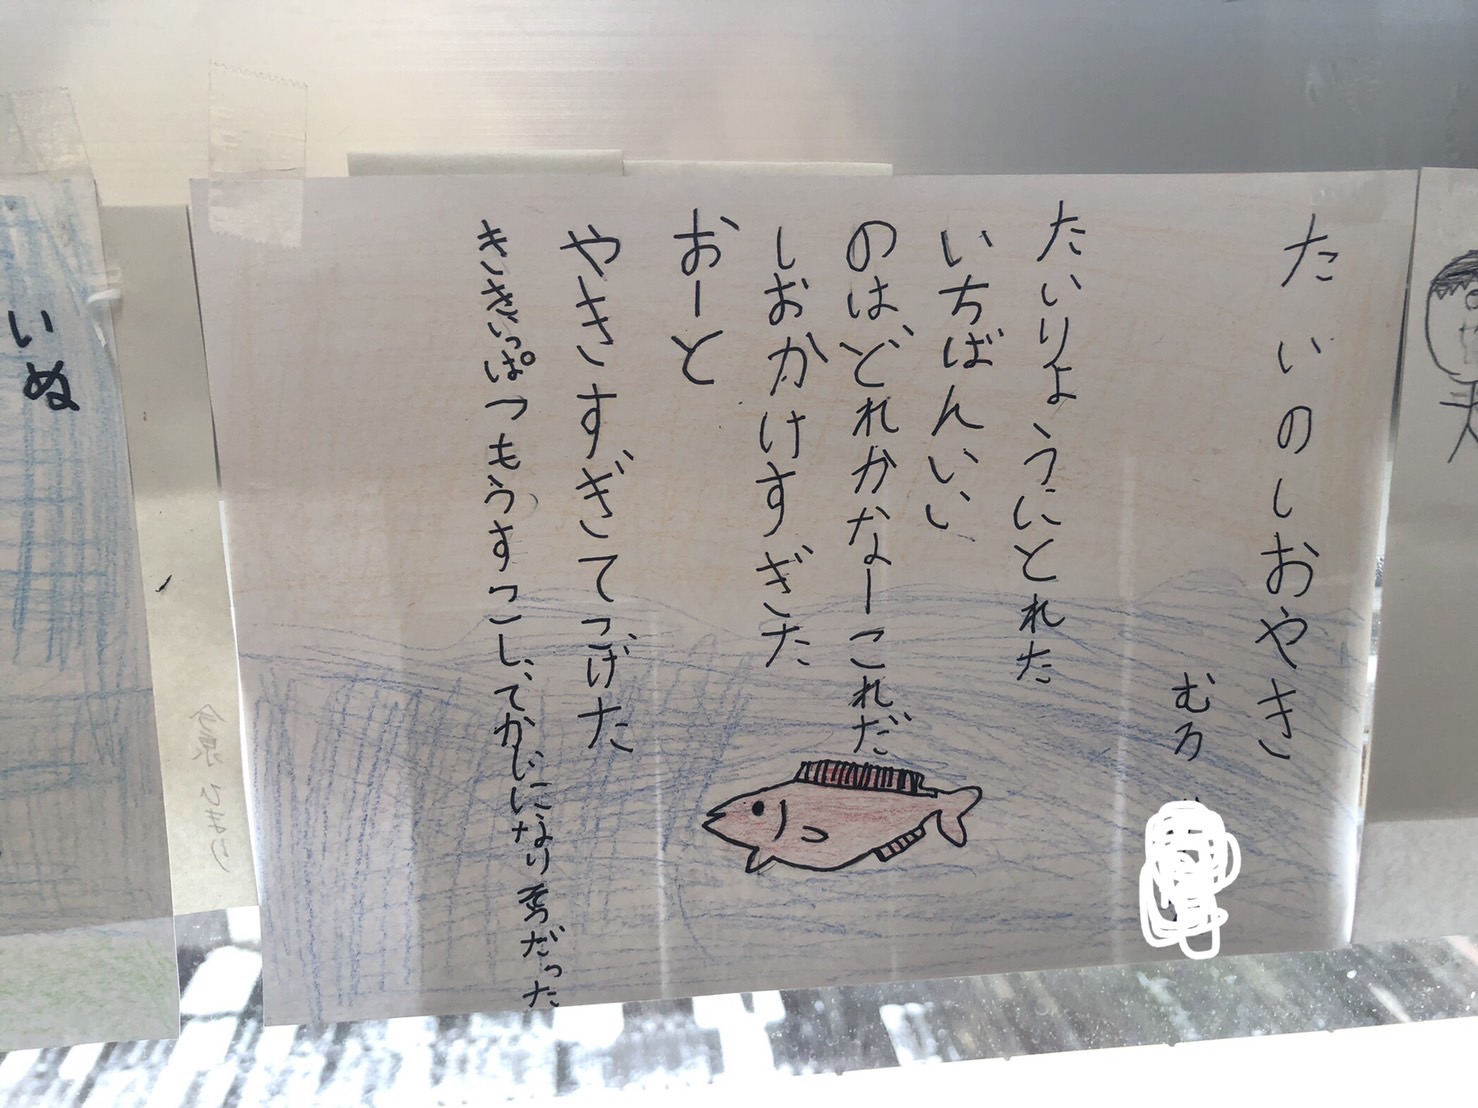 たいのしおやき
むろ
たいりようにとれた
いちばんいい
のは、どれかなーこれだ
しおかけすぎた
おーと
やきすぎてこげた
ききいっぱつもうすこし、でかじになりそうだった
いぬ